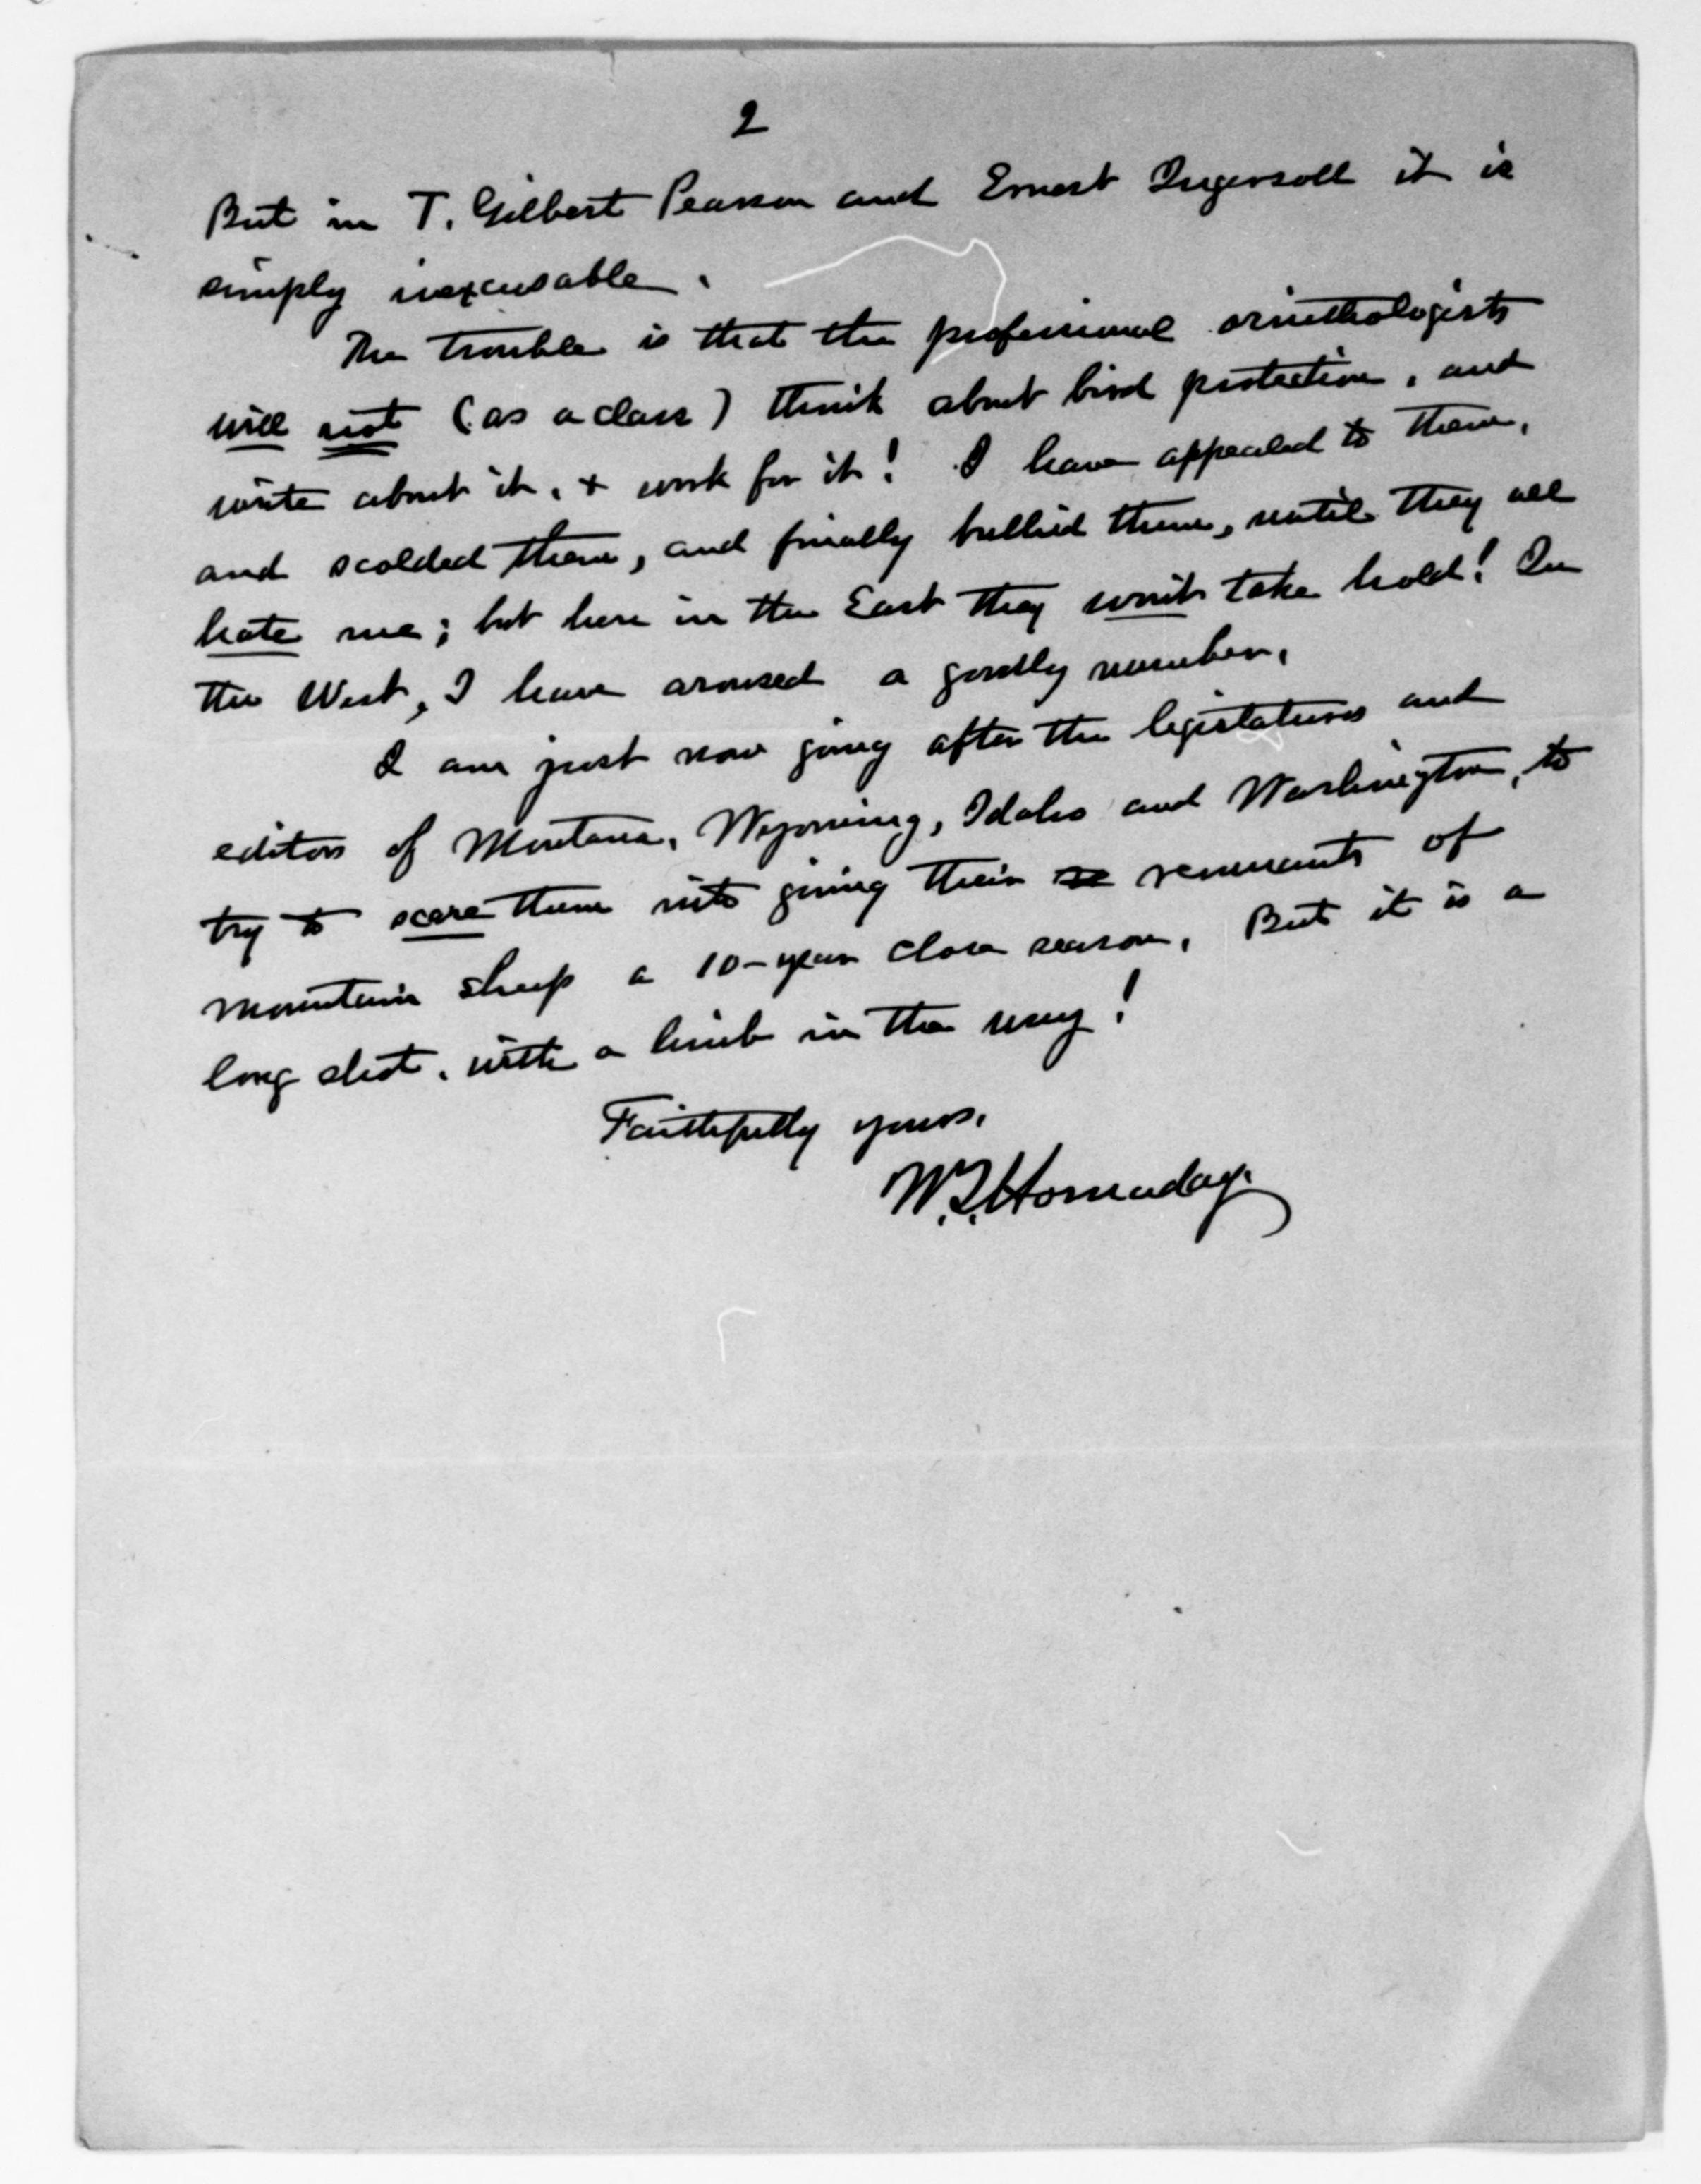 2
But in T. Gilbert Pearson and Ernest Ingersoll it is
simply inexcusable.
The trouble is that the professional ornithologists
will not (as a class) think about bird protection, and
write about it, + work for it! I have appealed to them,
and scolded them, and finally bullied them, until they all
hate me; but here in the East they won't take hold! In
the West, I have aroused a goodly number.
I am just now going after the legislatures and
editors of Montana, Wyoming, Idaho and Washington, to
try to scare them into giving their re remnants of
mountain sheep a 10-year close season. But it is a
long shot, with a limb in the way!
Faithfully yours,
W.T. Hornaday.